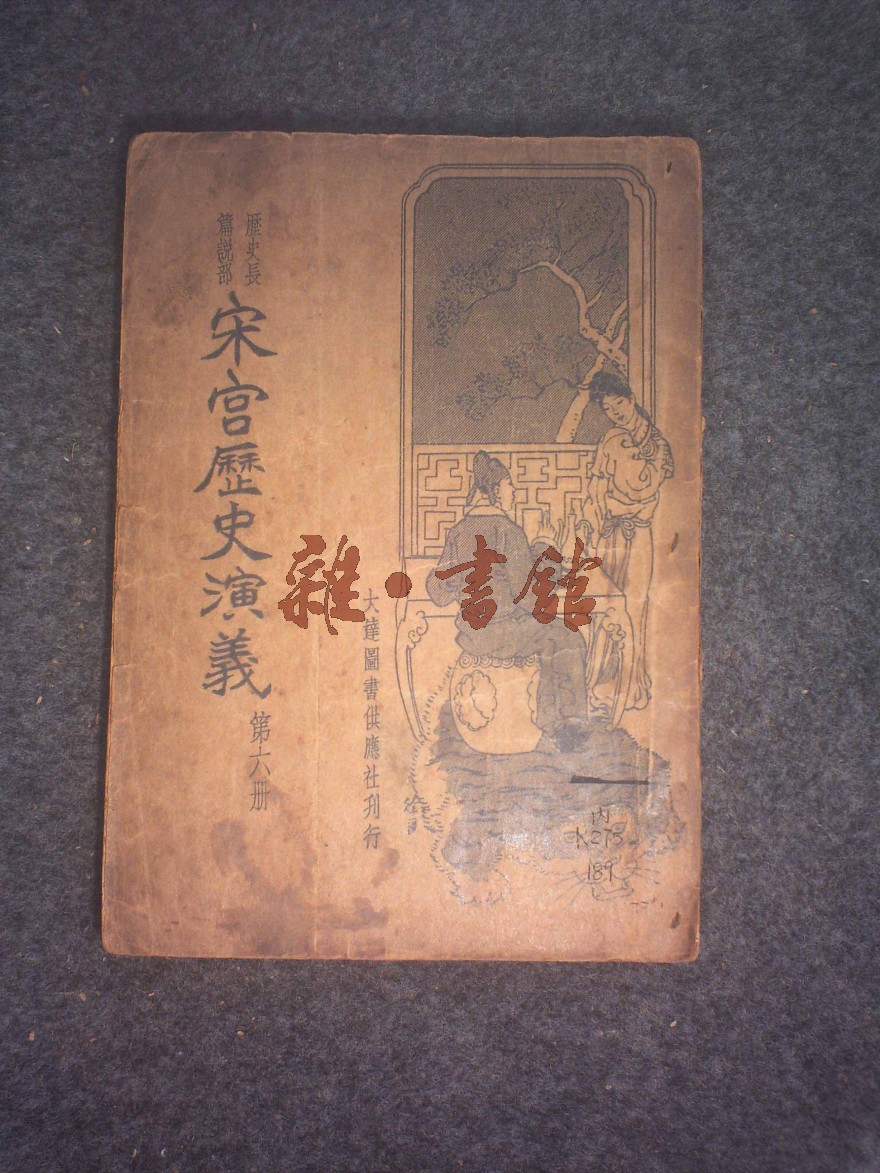 歷史長
篇説部
宋宮歷史演義
第六册
大達圖書供應社刋行
雜·書館
内
K275
189